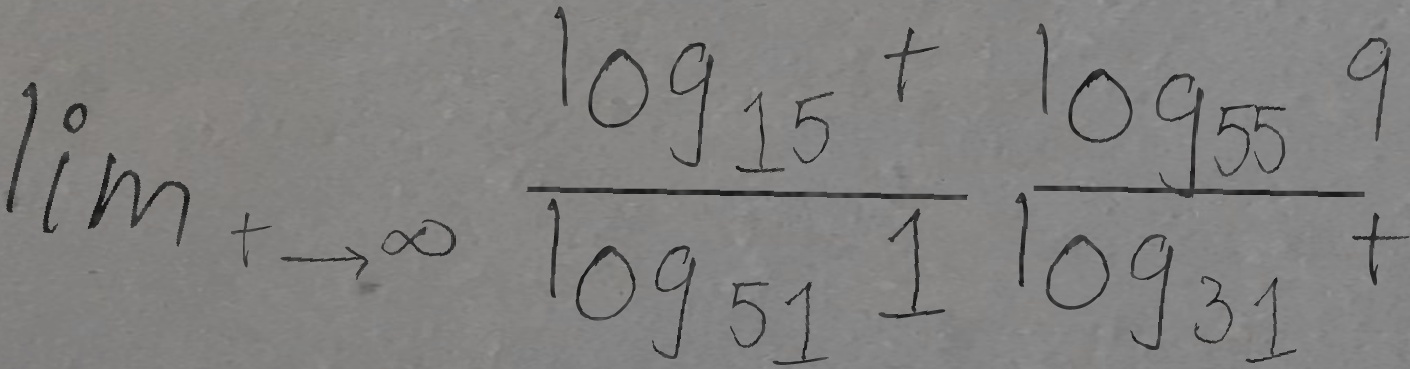 \lim_{t \to \infty} \frac{\log_{15} t}{\log_{51} 1} \frac{\log_{55} 9}{\log_{31} t}